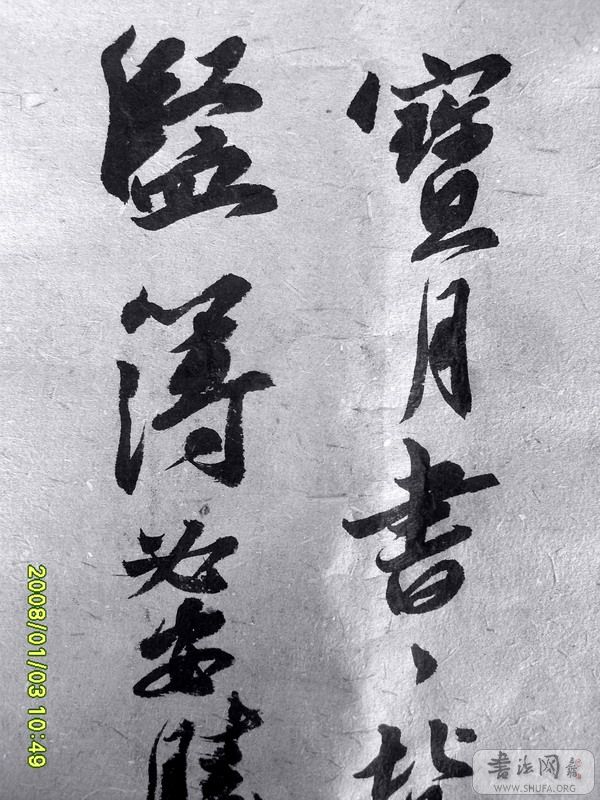 寶月書、背
監簿必安勝
2008/01/03 10:49
書法网
WWW.SHUFA.ORG